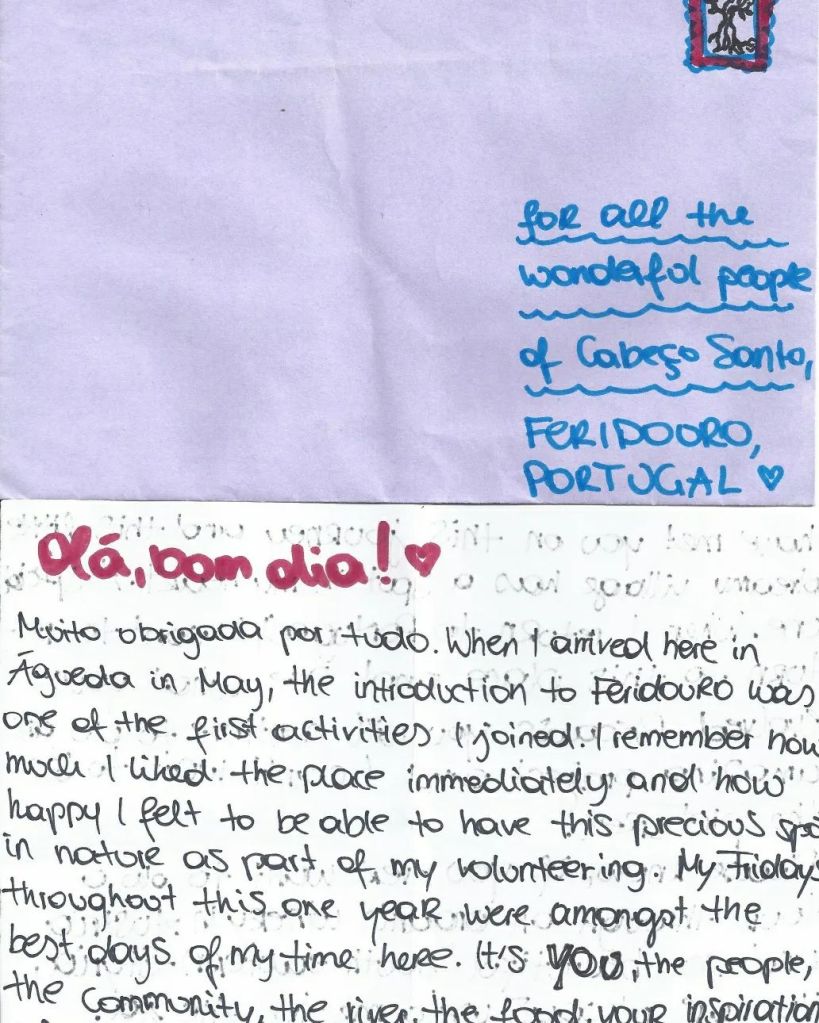 for all the
wonderful people
of Cabeço Santo,
FERIDOORO,
PORTUGAL ♥
Olá, bom dia! ♥
Muito obrigada por tudo. When I arrived here in
Águeda in May, the introduction to FERIDOURO was
one of the first activities I joined. I remember how
much I liked the place immediately and how
happy I felt to be able to have this precious spo
in nature as part of my volunteering. My Fridays
throughout this one year were amongst the
best days of my time here. It's YOU, the people,
the community, the river, the food, your inspiration